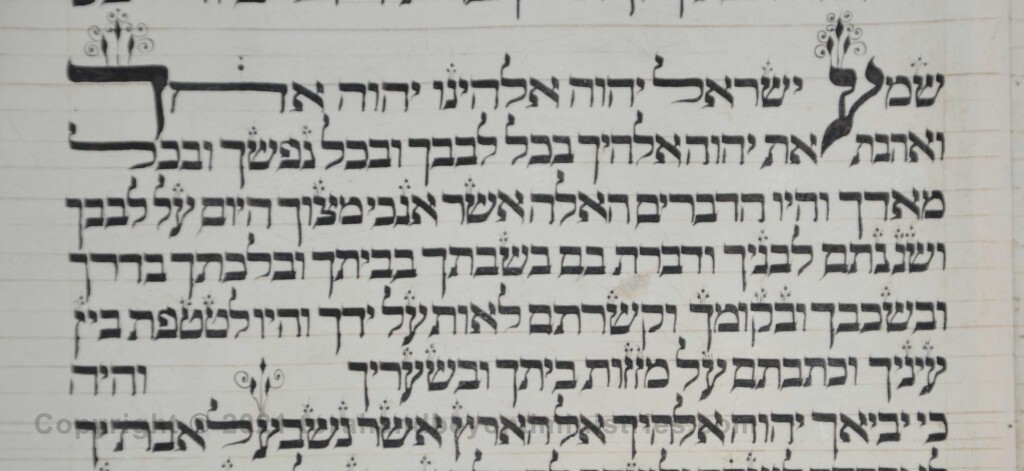 שמע ישראל יהוה אלהינו יהוה אחד
ואהבת את יהוה אלהיך בכל לבבך ובכל נפשך ובכל
מאדך והיו הדברים האלה אשר אנכי מצוך היום על לבבך
ושננתם לבניך ודברת בם בשבתך בביתך ובלכתך בדרך
ובשכבך ובקומך וקשרתם לאות על ידך והיו לטטפת בין
עיניך וכתבתם על מזזות ביתך ובשעריך והיה
כי יביאך יהוה אלהיך אל הארץ אשר נשבע לאבתיך
Copyright © 2021